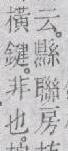 云。縣聯房
橫鍵。非也。